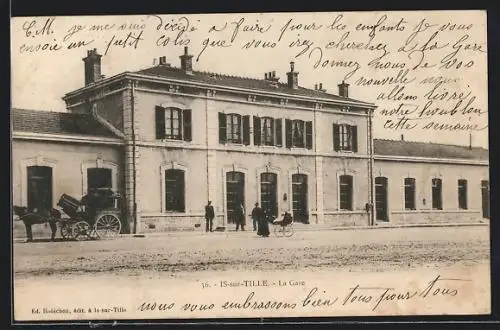 C.M. je me suis décidé à faire pour les enfants je vous
envoie un petit colis que vous irez chercher à la Gare
donnez nous de vos
nouvelle nous
allons livrer
notre houblon
cette semaine
36. - IS-sur-TILLE. - La Gare
Éd. édit. à Is-sur-Tille
nous vous embrassons bien tous pour tous